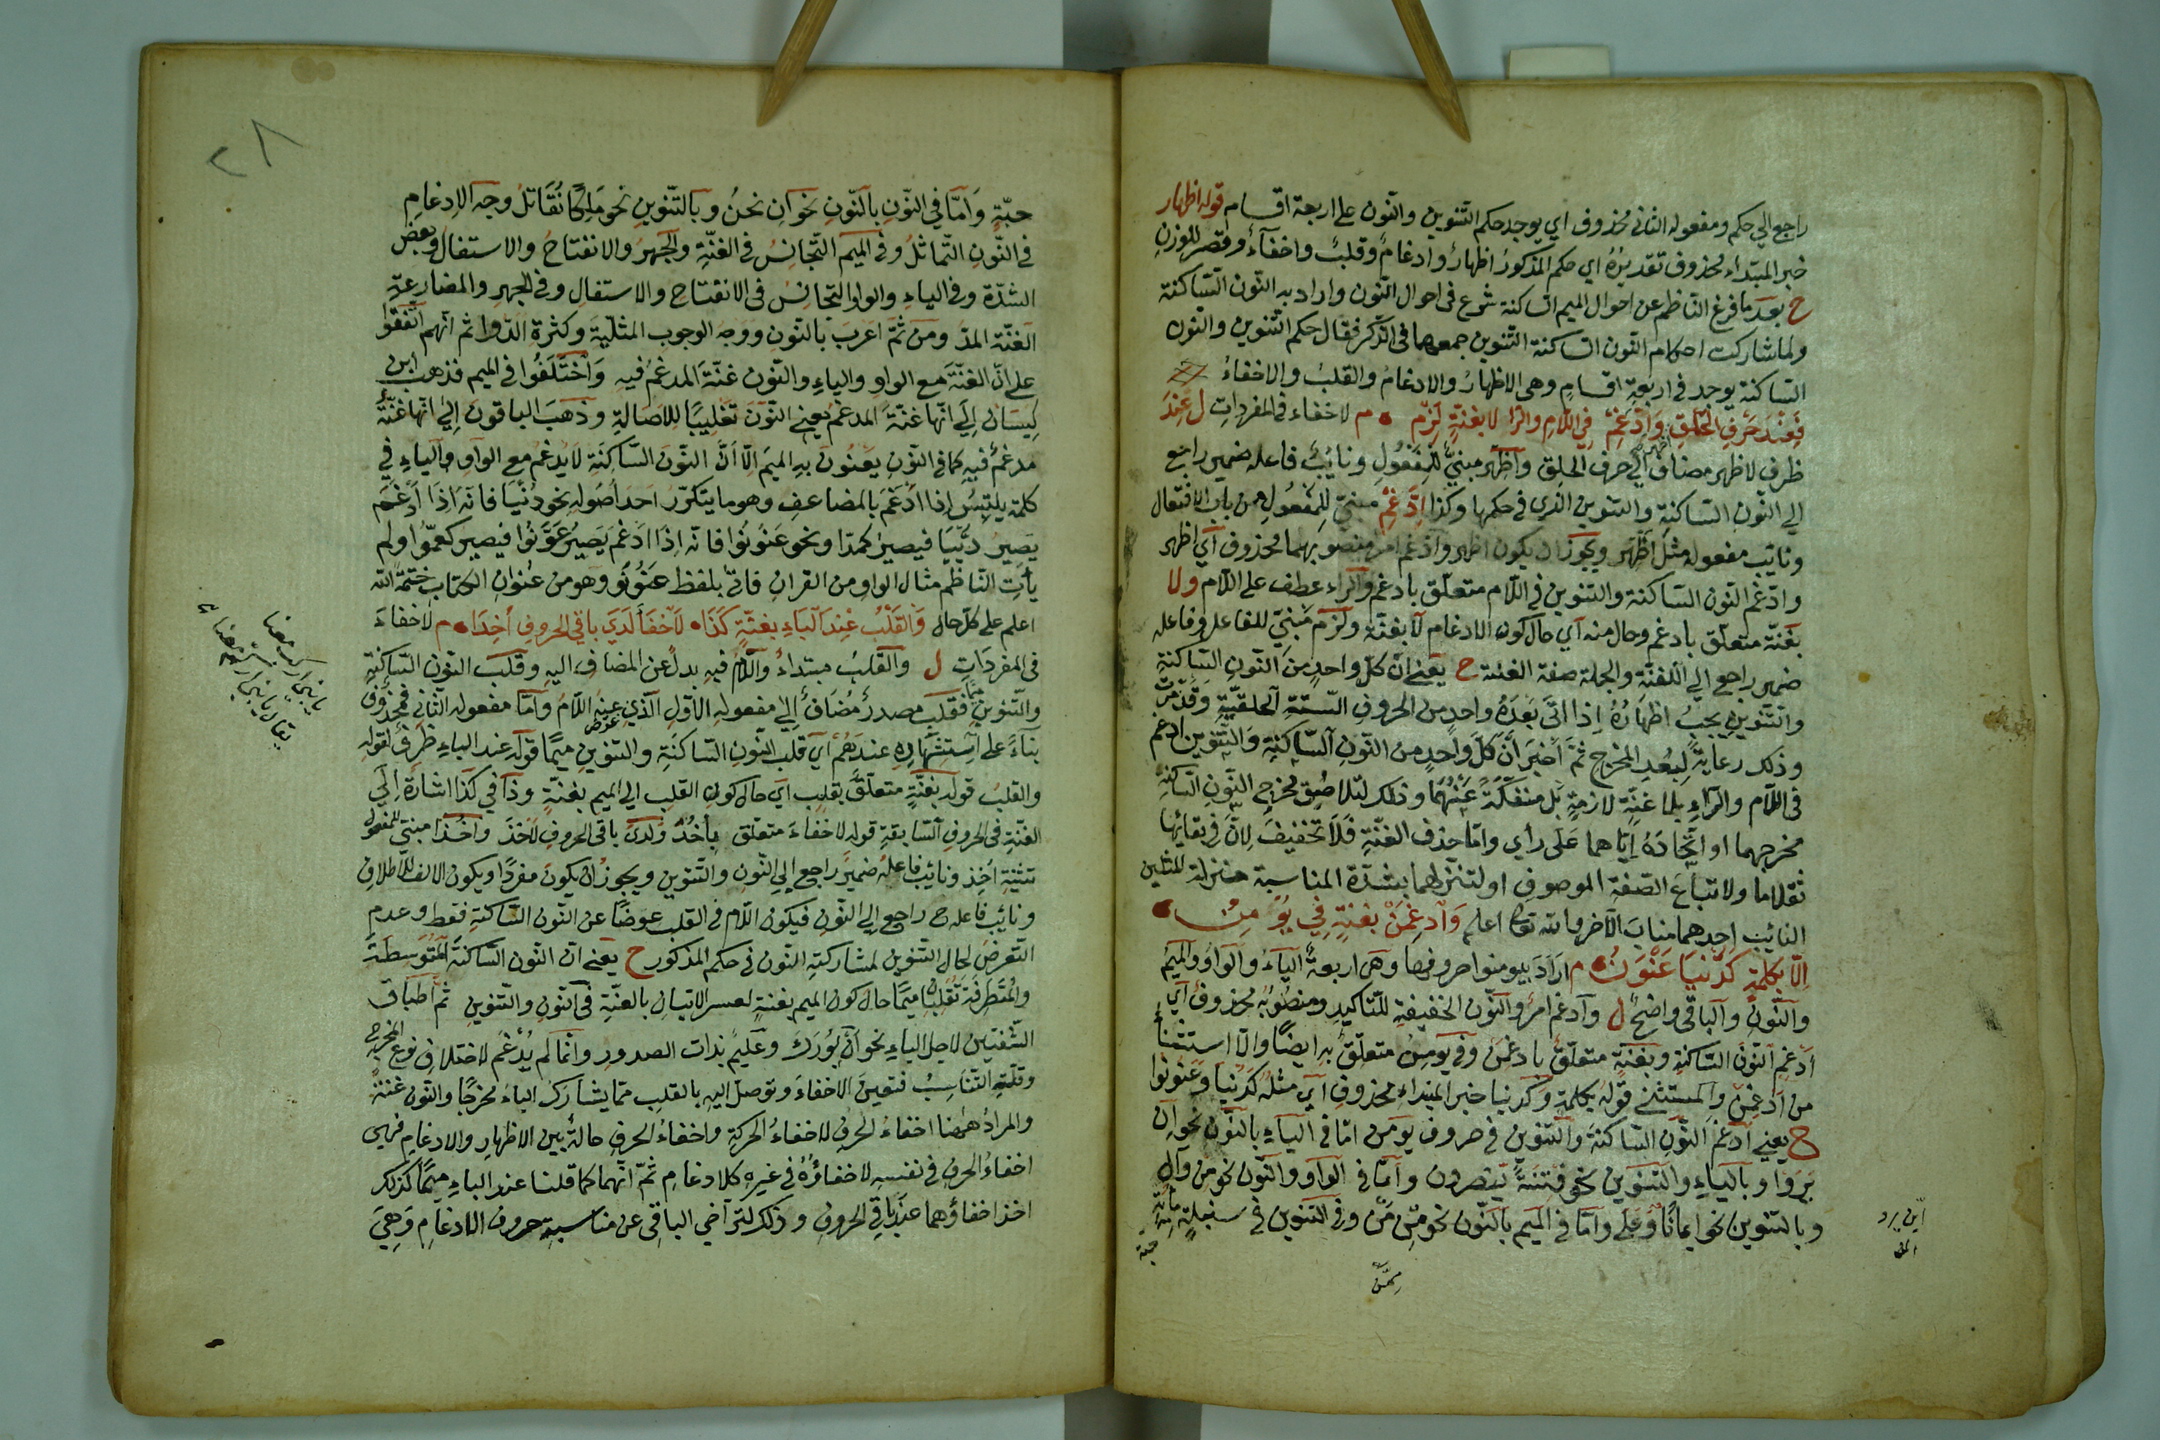 راجع الي حكم ومفعوله الثاني محذوف اي يوجد حكم التنوين والنون علي اربعة اقسام قوله اظهار
خبر المبتداء محذوف تقديره اي حكم المذكور اظهار وادغام وقلب واخفاء وقصر للوزن
ح بعد ما فرغ الناظم عن احوال الميم الساكنة شرع في احوال النون واراد به النون الساكنة
ولما شاركت احكام النون الساكنة التنوين جمعهما في الذكر فقال حكم التنوين والنون
الساكنة يوجد في اربعة اقسام وهي الاظهار والادغام والقلب والاخفاء
فَعِنْدَ حَرْفِ الحَلْقِ وَادَّغِمْ فِي اللَّامِ والرَّا لا بغنةٍ لَزِمْ م لا خفاء في المفردات ل عِنْدَ
ظرف لا ظهر مضاف الي حرف الحلق وأظهر مبنيّ للمفعول ونائب فاعله ضمير راجع
الي النون الساكنة والتنوين الذي في حكمها وكذا ادّغم مبنيّ للمفعول من باب الافتعال
ونائب مفعوله مثل اظهر ويجوز ان يكون اظهر وادغم امر منصوبهما محذوف اي اظهر
وادّغم النون الساكنة والتنوين في اللام متعلق بادغم والراء عطف علي اللام ولا
بغنّة متعلق بادغم وحال منه اي حال كون الادغام لا بغنة ولزم مبنيّ للفاعل وفاعله
ضمير راجع الي الغنّة والجملة صفة الغنة ح يعني انّ كلّ واحد من النون الساكنة
والتنوين يجب اظهاره اذا اتي بعده واحد من الحروف الستة الحلقية وقد مرت
وذلك رعاية لبعد المخرج ثم اخبر انّ كل واحد من النون الساكنة والتنوين ادغم
في اللام والراء بلا غنة لازمة بل منفكة عنهما وذلك لتلاصق مخرج النون الساكنة
مخرجهما او اتحاده اياهما علي رأي وامّا حذف الغنة فلا تخفيف لانّ في بقائها
ثقلا ما ولاتباع الصفة الموصوف او لتنزلهما بشدّة المناسبة منزلة المثلين
النائب احدهما مناب الآخر والله تعالي اعلم وَادْغِمَنْ بغنةٍ فِي يُومِنُ
اِلَّا بكلمةٍ كدُنْيَا عَنْوَنُوا م اراد بيومنوا حروفها وهي اربعة الياء والواو والميم
والنون والباقي واضح ل وادغم امر والنون الخفيفة للتاكيد ومنصوبه محذوف اي
ادّغم النون الساكنة وبغنة متعلق بادغمن وفي يومن متعلق به ايضًا والّا استثناء
من ادغمن والمستثني قوله بكلمة وكدنيا خبر المبتداء محذوف اي مثله كدنيا وعنونوا
ح يعني ادغم النون الساكنة والتنوين في حروف يومن امّا في الياء بالنون نحو ان
يروا وبالياء والتنوين نحو فتنة ينصرون وامّا في الواو والنون نحو من وال
وبالتنوين نحو ايمانًا وعلي وامّا في الميم بالنون نحو مِن مّن وفي التنوين في سنبلة مائة
حبة
مِمَّنْ
ان يرد
حبّةٍ وَامّا في النّون بالنّون نحو ان نحن وبالتنوين نحو ملكًا نقاتل وجه الادغام
في النون التماثل وفي الميم التجانس في الغنّة والجهر والانفتاح والاستفال وبعض
الشدّة وفي الياء والواو التجانس في الانفتاح والاستفال وفي الجهر والمضارعة
الغنّة المدّ ومن ثمّ اعرب بالنون ووجه الوجوب المثليّة وكثرة الدّوا ثم انّهم اتفقوا
علي انّ الغنّة مع الواو والياء والنون غنّة المدغم فيه واختلفوا في الميم فذهب ابن
كيسان الي انّها غنة المدغم يعني النون تغليبًا للاصالة وذهب الباقون الي انّها غنة
مدغم فيه كما في النون يعنون به الميم الّا أنّ النون السّاكنة لا يدغم مع الواو والياء في
كلمة يلتبس اذا ادّغم بالمضاعف وهو ما يتكرّر احد اصوله نحو دنيا فانّه اذا ادّغم
يصير ديّيا فيصير كمدّا ونحو عنونوا فانّه اذا ادّغم يصير عوّنوا فيصير كعمّوا ولم
يأت الناظم مثال الواو من القران فاتي بلفظ عنونو وهو من عنوان الكتاب ختمه الله
اعلم علي كل حال وَالْقَلْبُ عِنْدَ البَاءِ بغنّةٍ كَذَا لَاخْفَا لَدَي باقي الحروف أُخِذَا م لا خفاء
في المفردات ل والقلب مبتداء واللام فيه بدل عن المضاف اليه وقلب النون الساكنة
والتنوين فقلب مصدر مضاف الي مفعوله الاول الذي عنه اللام وامّا مفعوله الثاني فمحذوف
بناءً علي استشهاره عندهم اي قلب النون الساكنة والتنوين ميمًا قوله عند الباء ظرف لقوله
والقلب قوله بغنّة متعلق بقلب اي حال كون القلب الي الميم بغنة وذا في كذا اشارة الي
الغنّة في الحروف السابقة قوله لاخفاء متعلق بأخذ ولدي باقي الحروف لأخذ واخذا مبني للمفعول
تثنية أخذ ونائب فاعله ضمير راجع الي النون والتنوين ويجوز ان يكون مفردًا ويكون الالف للاطلاق
ونائب فاعله ح راجع الي النون فيكون اللام في القلب عوضًا عن النون الساكنة فقط وعدم
التعرض لحال التنوين لمشاركته النون في حكم المذكور ح يعني انّ النون الساكنة المتوسطة
والمتطرفة تقلبان ميمًا حال كون الميم بغنة لعسر الاتيان بالغنّة في النون والتنوين ثم اطباق
الشفتين لاجل الباء نحو ان بورك وعليم بذات الصدور وانما لم يدغم لاختلاف نوع المخرج
وقلة التناسب فتعين الاخفاء وتوصل اليه بالقلب ممّا يشارك الباء مخرجًا والنون غنة
والمراد ههنا اخفاء الحرف لا خفاء الحركة واخفاء الحرف حالة بين الاظهار والادغام فهي
اخفاء الحرف في نفسه لا خفاؤه في غيره كلادغام ثمّ انّهما كما قلنا عند الباء ميمًا كذلك
اخذ اخفاؤهما عند باقي الحروف وذلك لتراخي الباقي عن مناسبة حروف الادغام وهي
٢٨